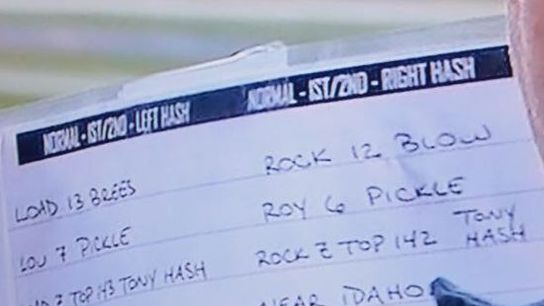 NORMAL - 1ST/2ND - LEFT HASH
LOAD 13 BREES
LOU 7 PICKLE
Z TOP 143 TONY HASH
NORMAL - 1ST/2ND - RIGHT HASH
ROCK 12 BLOW
ROY 6 PICKLE
ROCK Z TOP 142 TONY HASH
NEAR IDAHO